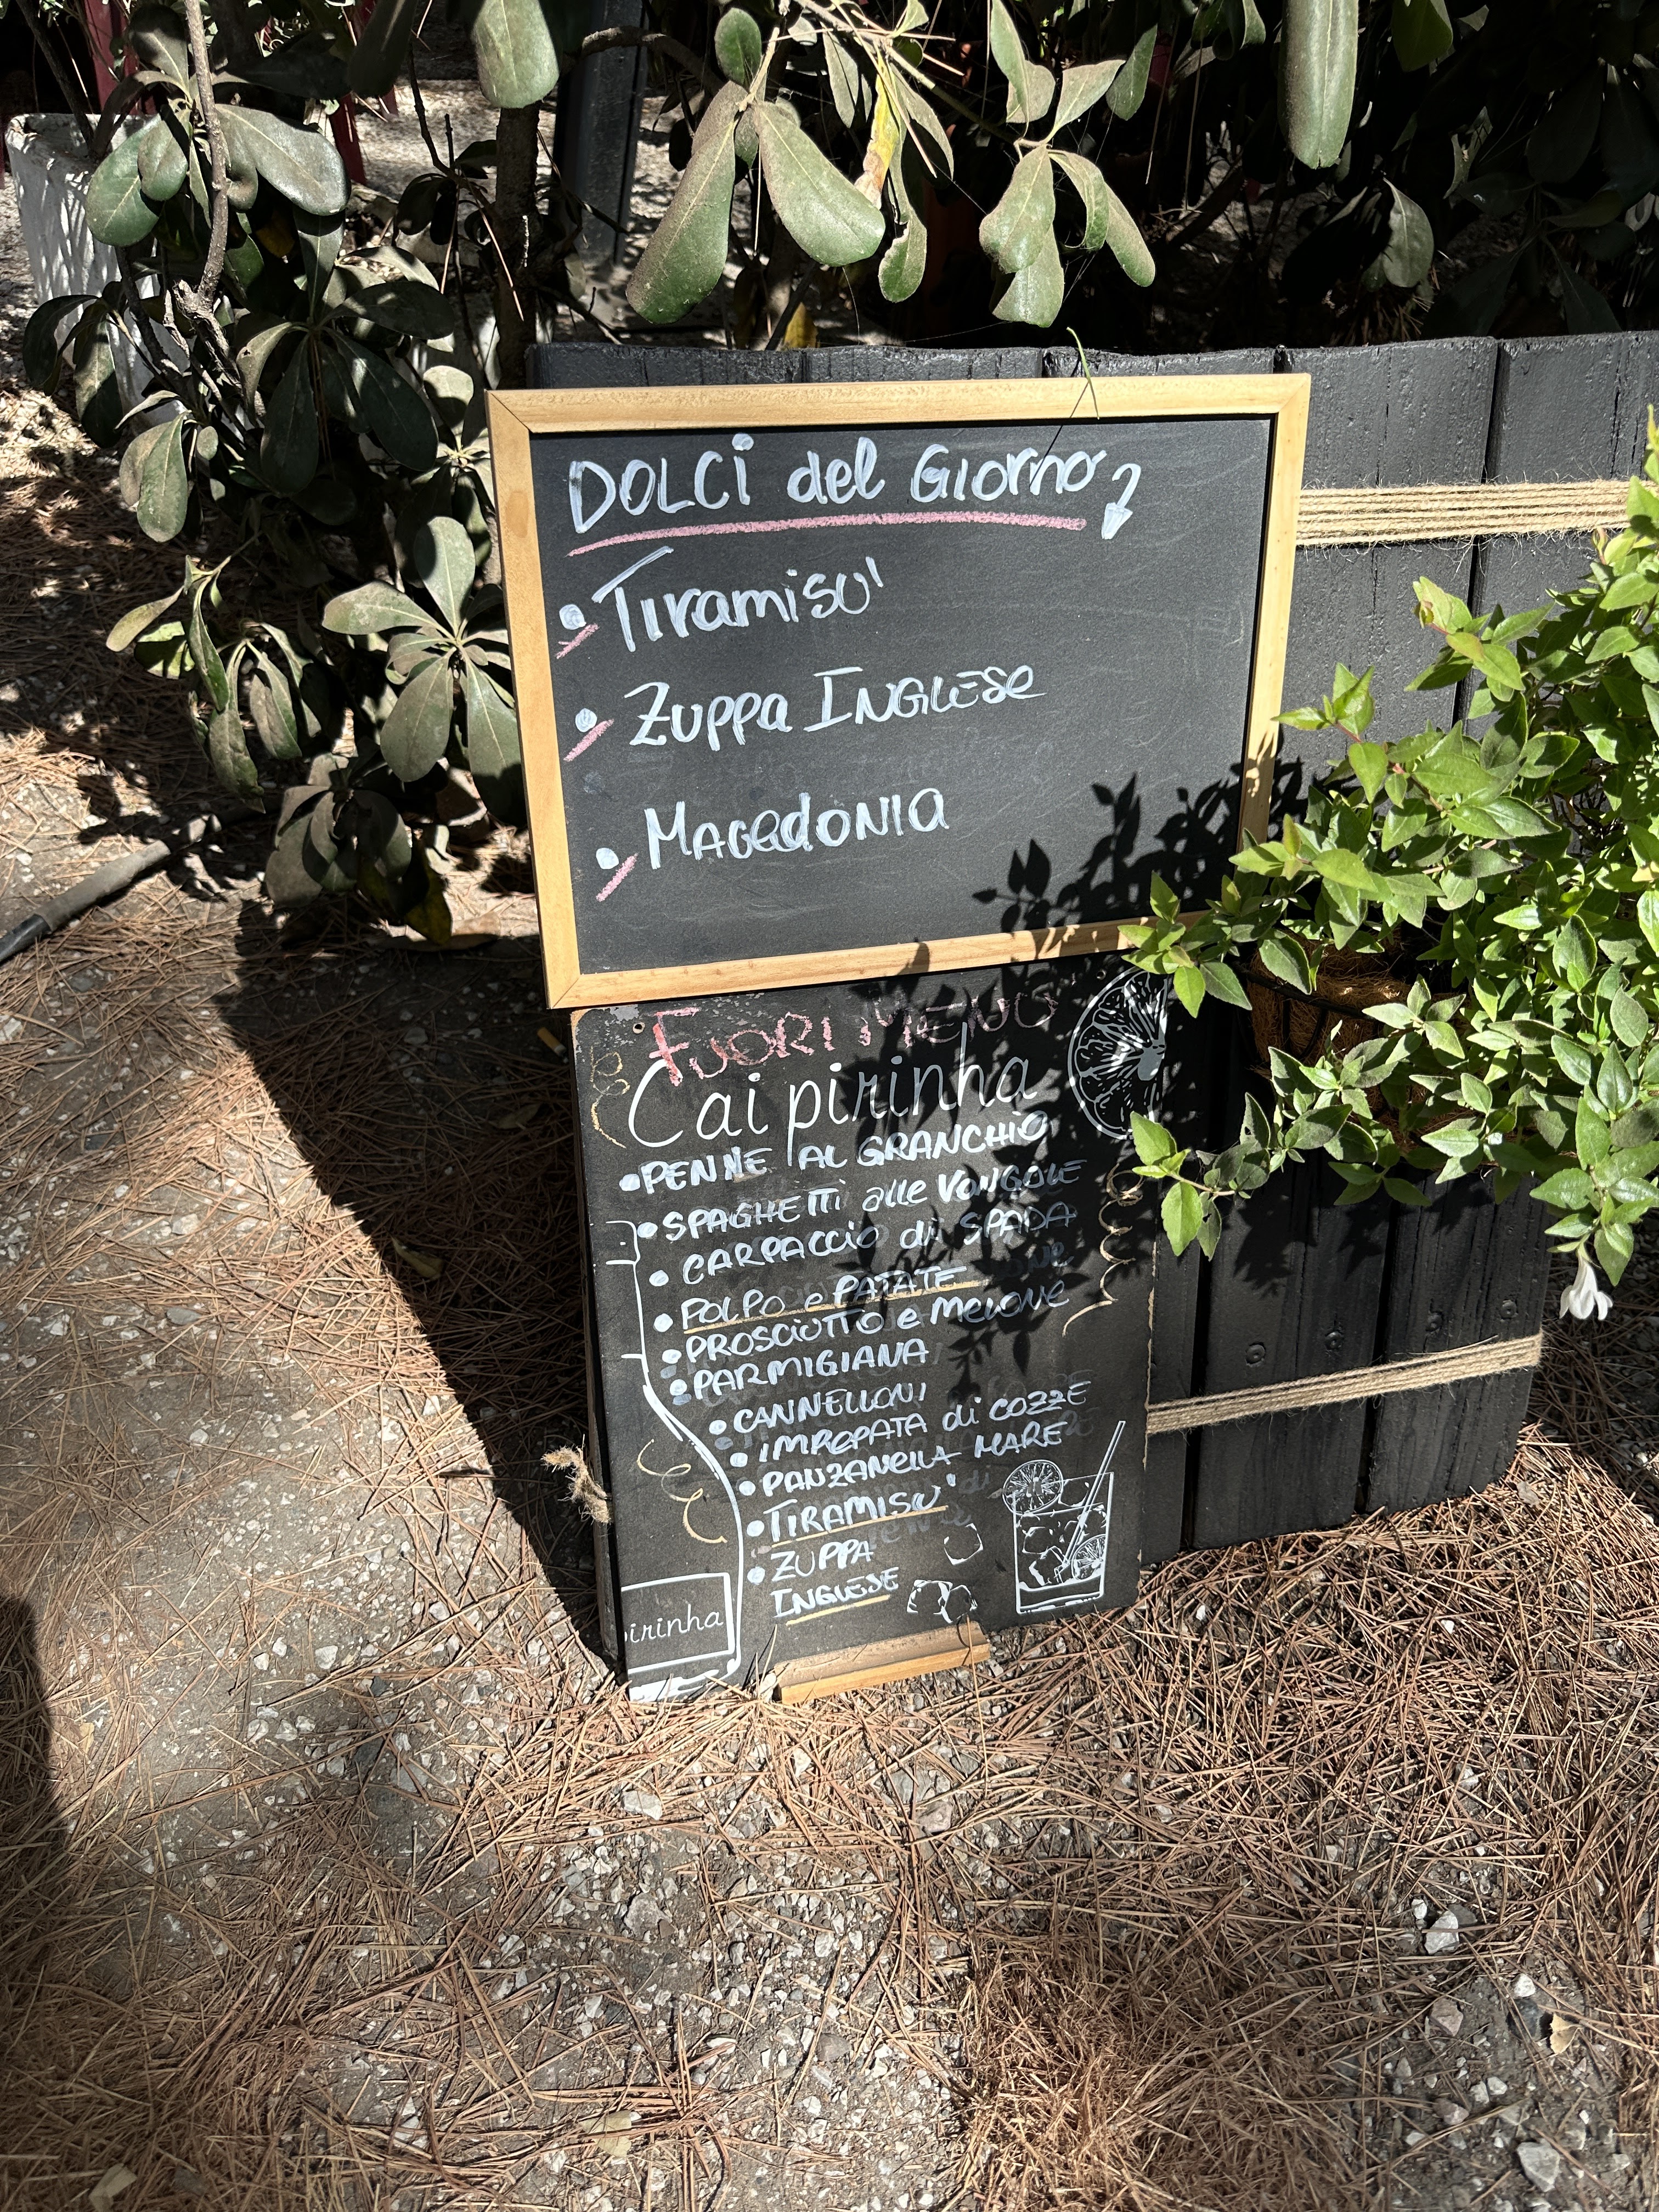 DOLCI del GIORNO
• TIRAMISU'
• ZUPPA INGLESE
• MACEDONIA
FUORI MENU'
Caipirinha
• PENNE AL GRANCHIO
• SPAGHETTI alle VONGOLE
• CARPACCIO di SPADA
• POLPO e PATATE
• PROSCIUTTO e MELONE
• PARMIGIANA
• CANNELLONI
• IMPEPATA di COZZE
• PANZANELLA MARE
• TIRAMISU'
• ZUPPA
INGLESE
irinha